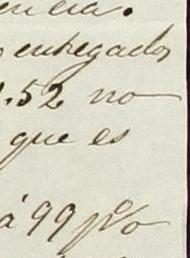 encia.
entregados
.52 no
que es
á 99 p%